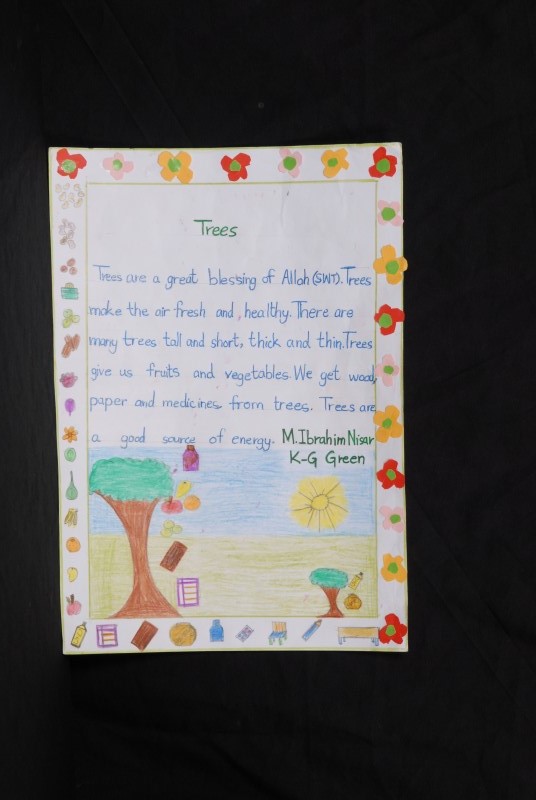 Trees
Trees are a great blessing of Allah (SWT). Trees
make the air fresh and, healthy. There are
many trees tall and short, thick and thin. Trees
give us fruits and vegetables. We get wood,
paper and medicines from trees. Trees are
a good source of energy. M. Ibrahim Nisar
K-G Green